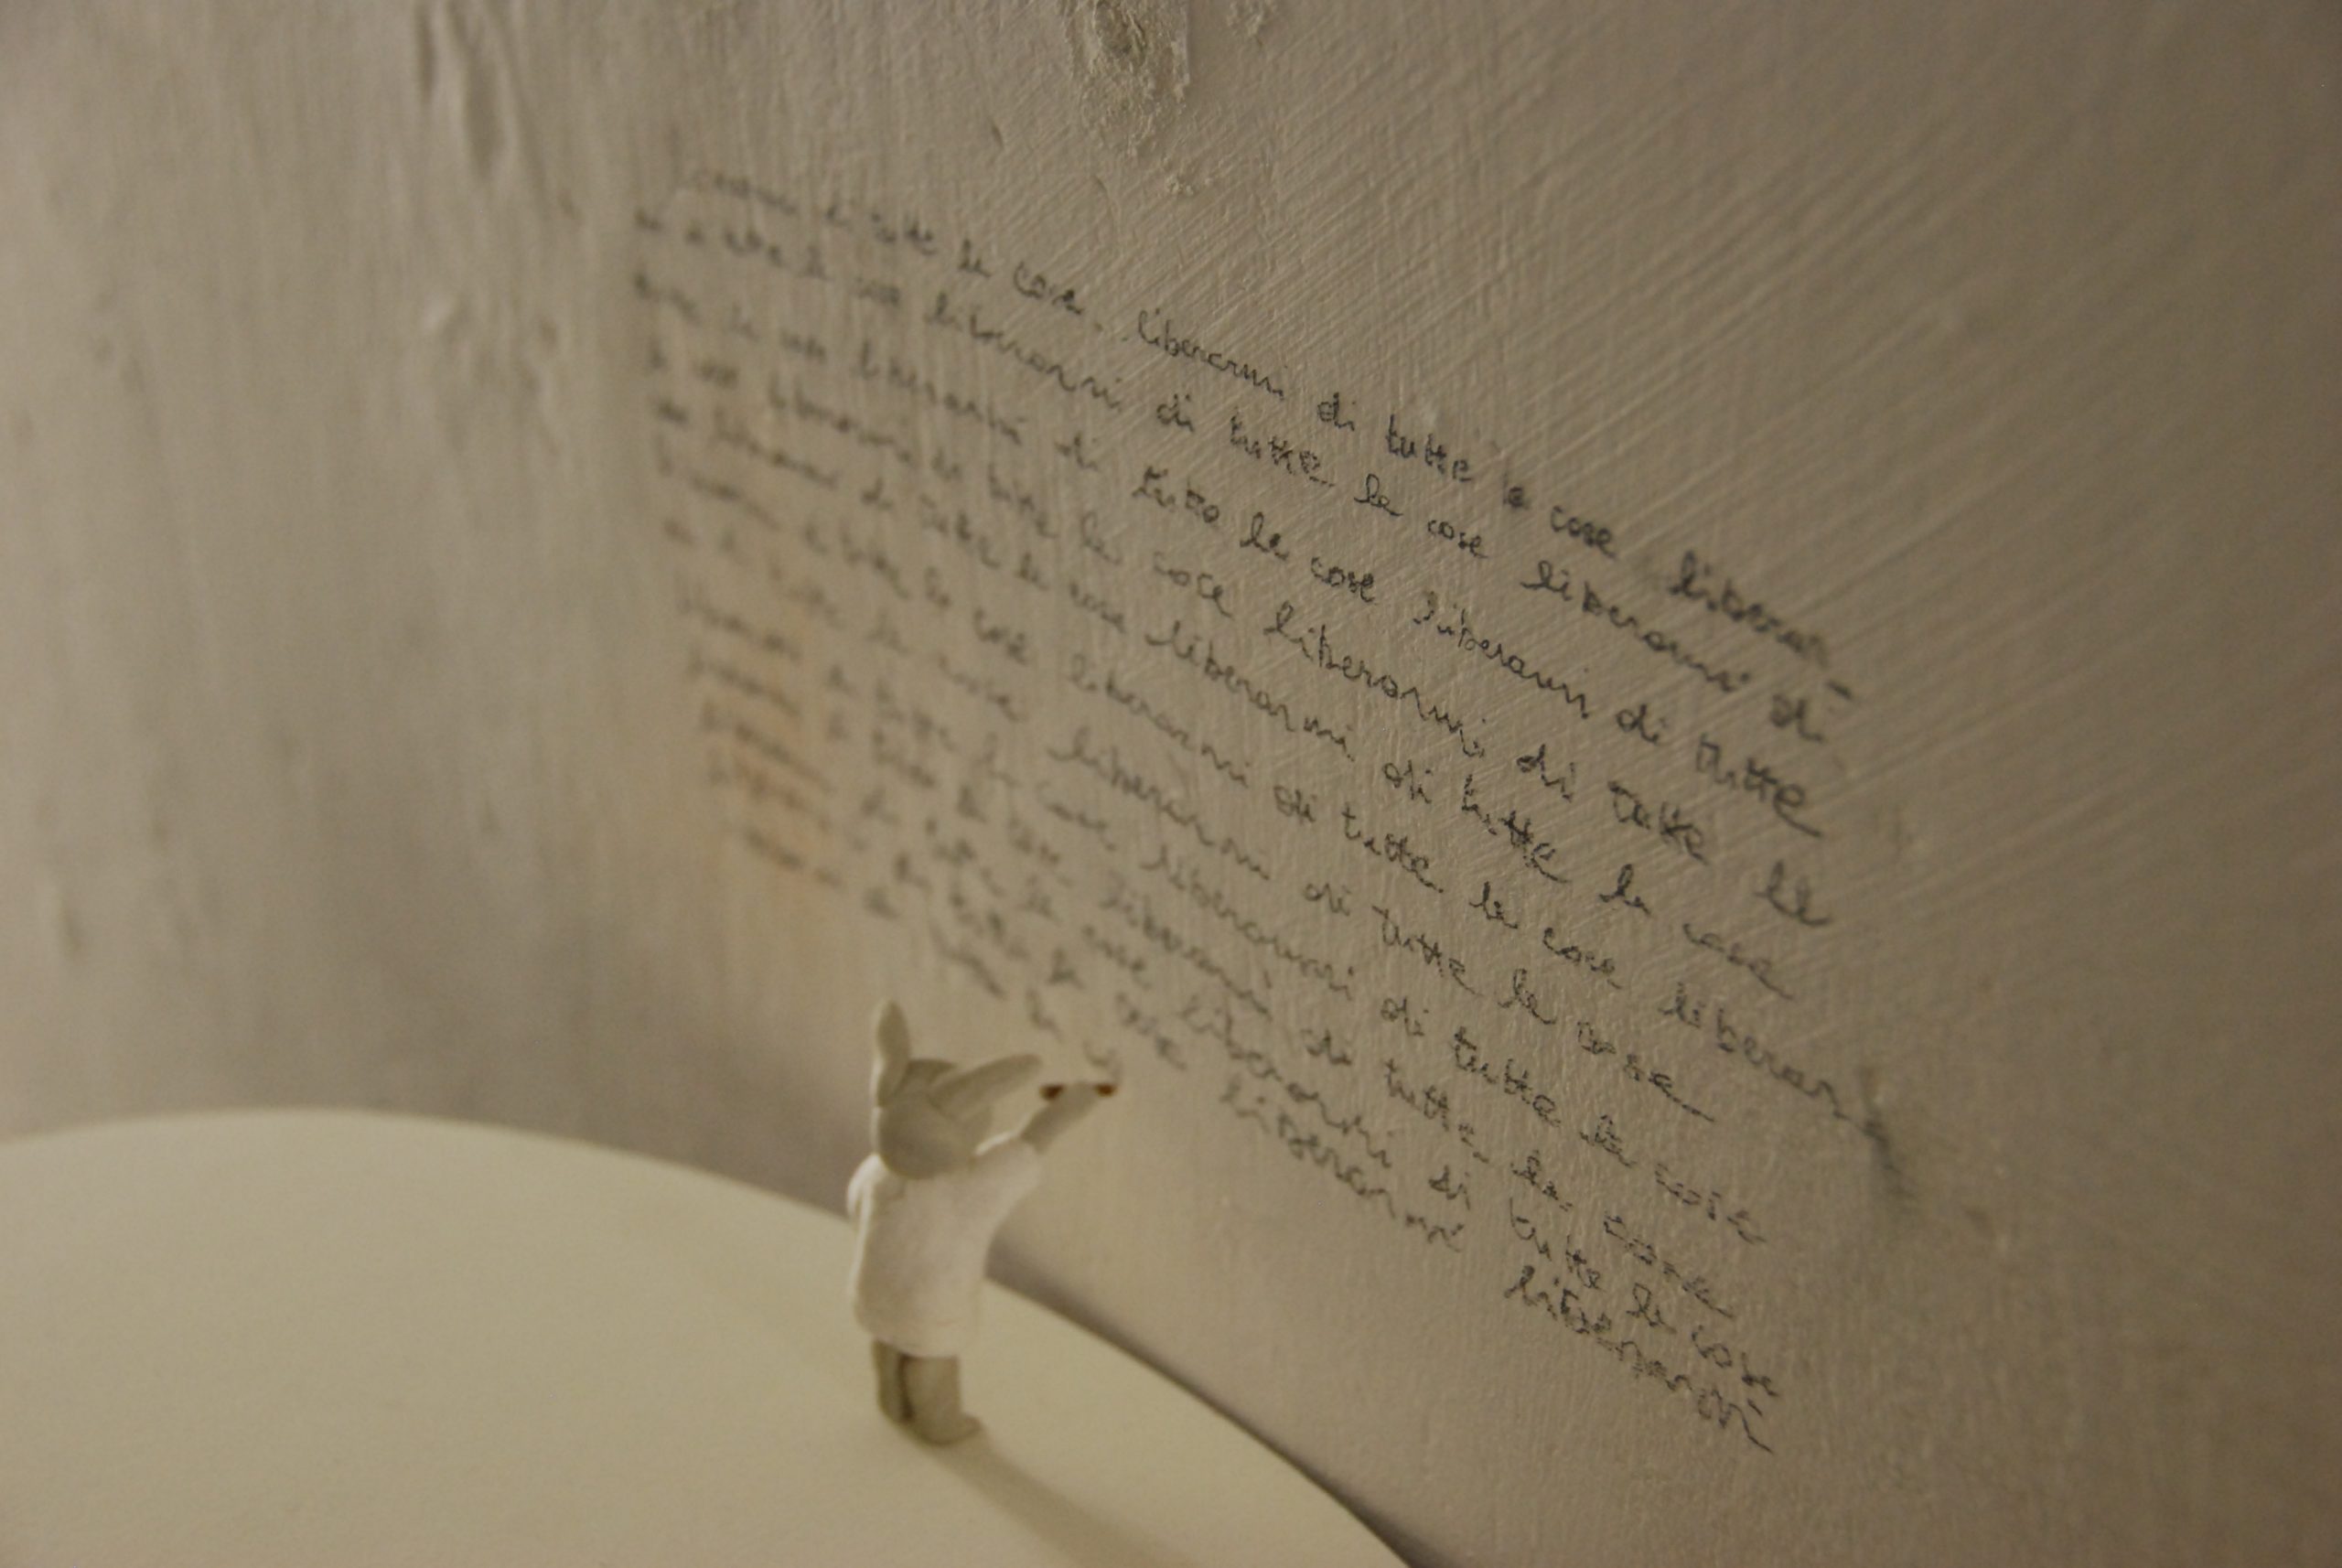 di tutte le cose. liberarmi di tutte le cose liberar-
di tutte le cose liberarmi di tutte le cose liberarmi di
tutte le cose liberarmi di tutte le cose liberarmi di tutte
le cose liberarmi di tutte le cose liberarmi di tutte le
cose liberarmi di tutte le cose liberarmi di tutte le cose
liberarmi di tutte le cose liberarmi di tutte le cose liberar
di tutte le cose liberarmi di tutte le cose
liberarmi di tutte le cose liberarmi di tutte le cose
liberarmi di tutte le cose liberarmi di tutte le cose
liberarmi di tutte le cose liberarmi di tutte le cose
di tutte le cose liberarmi liberarmi